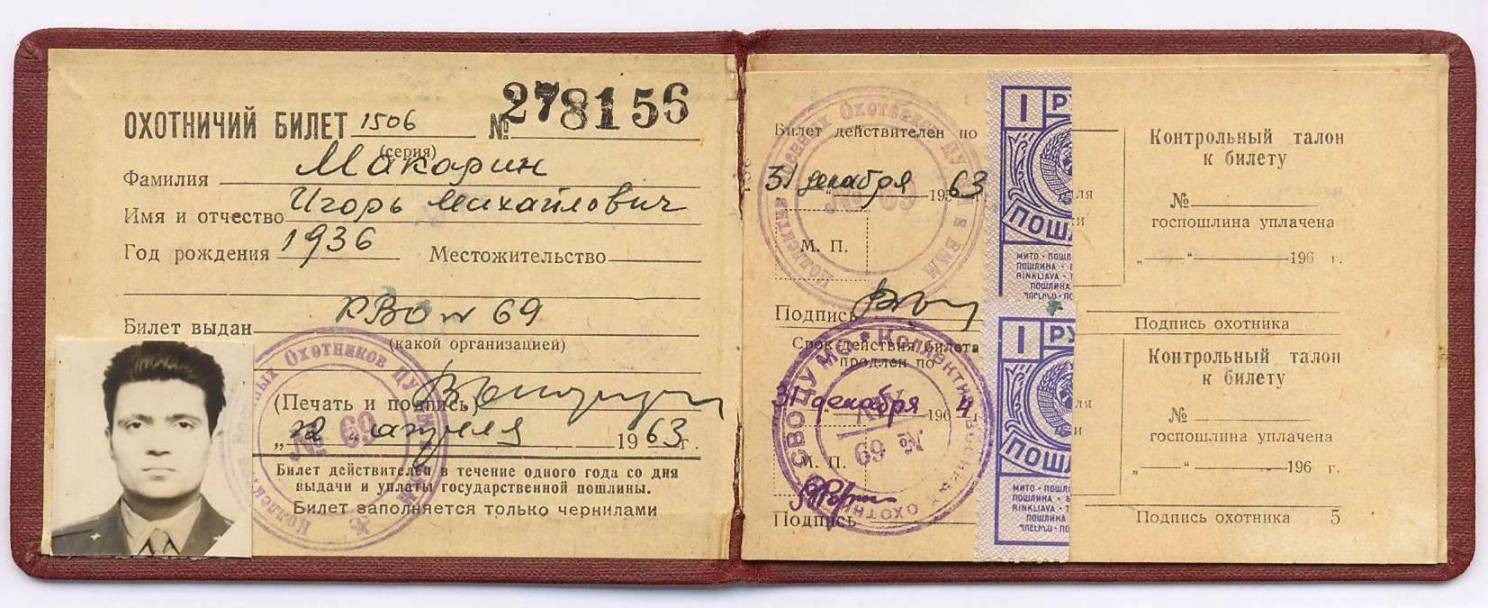 ОХОТНИЧИЙ БИЛЕТ 1506 № 278156
(серия)
Фамилия Макарин
Имя и отчество Игорь Михайлович
Год рождения 1936 Местожительство
Билет выдан 69
(какой организацией)
(Печать и подпись)
„22“ апреля 1963 г.
Билет действителен в течение одного года со дня
выдачи и уплаты государственной пошлины.
Билет заполняется только чернилами
Охотников
№ 69
Билет действителен по
31 декабря 1963 г.
М. П.
Подпись
Срок действия билета
продлен по
31 декабря 1964 г.
М. П.
Подпись
Охотников
№ 69
69 №
1 РУ
ПОШ
МИТО - ПОШЛ
ПОШЛИНА
RINKLIAVA
ПОШЛИНА
1 РУ
ПОШ
МИТО - ПОШЛ
ПОШЛИНА
RINKLIAVA
ПОШЛИНА
Контрольный талон
к билету
№
госпошлина уплачена
„ “ 196 г.
Подпись охотника
Контрольный талон
к билету
№
госпошлина уплачена
„ “ 196 г.
Подпись охотника 5